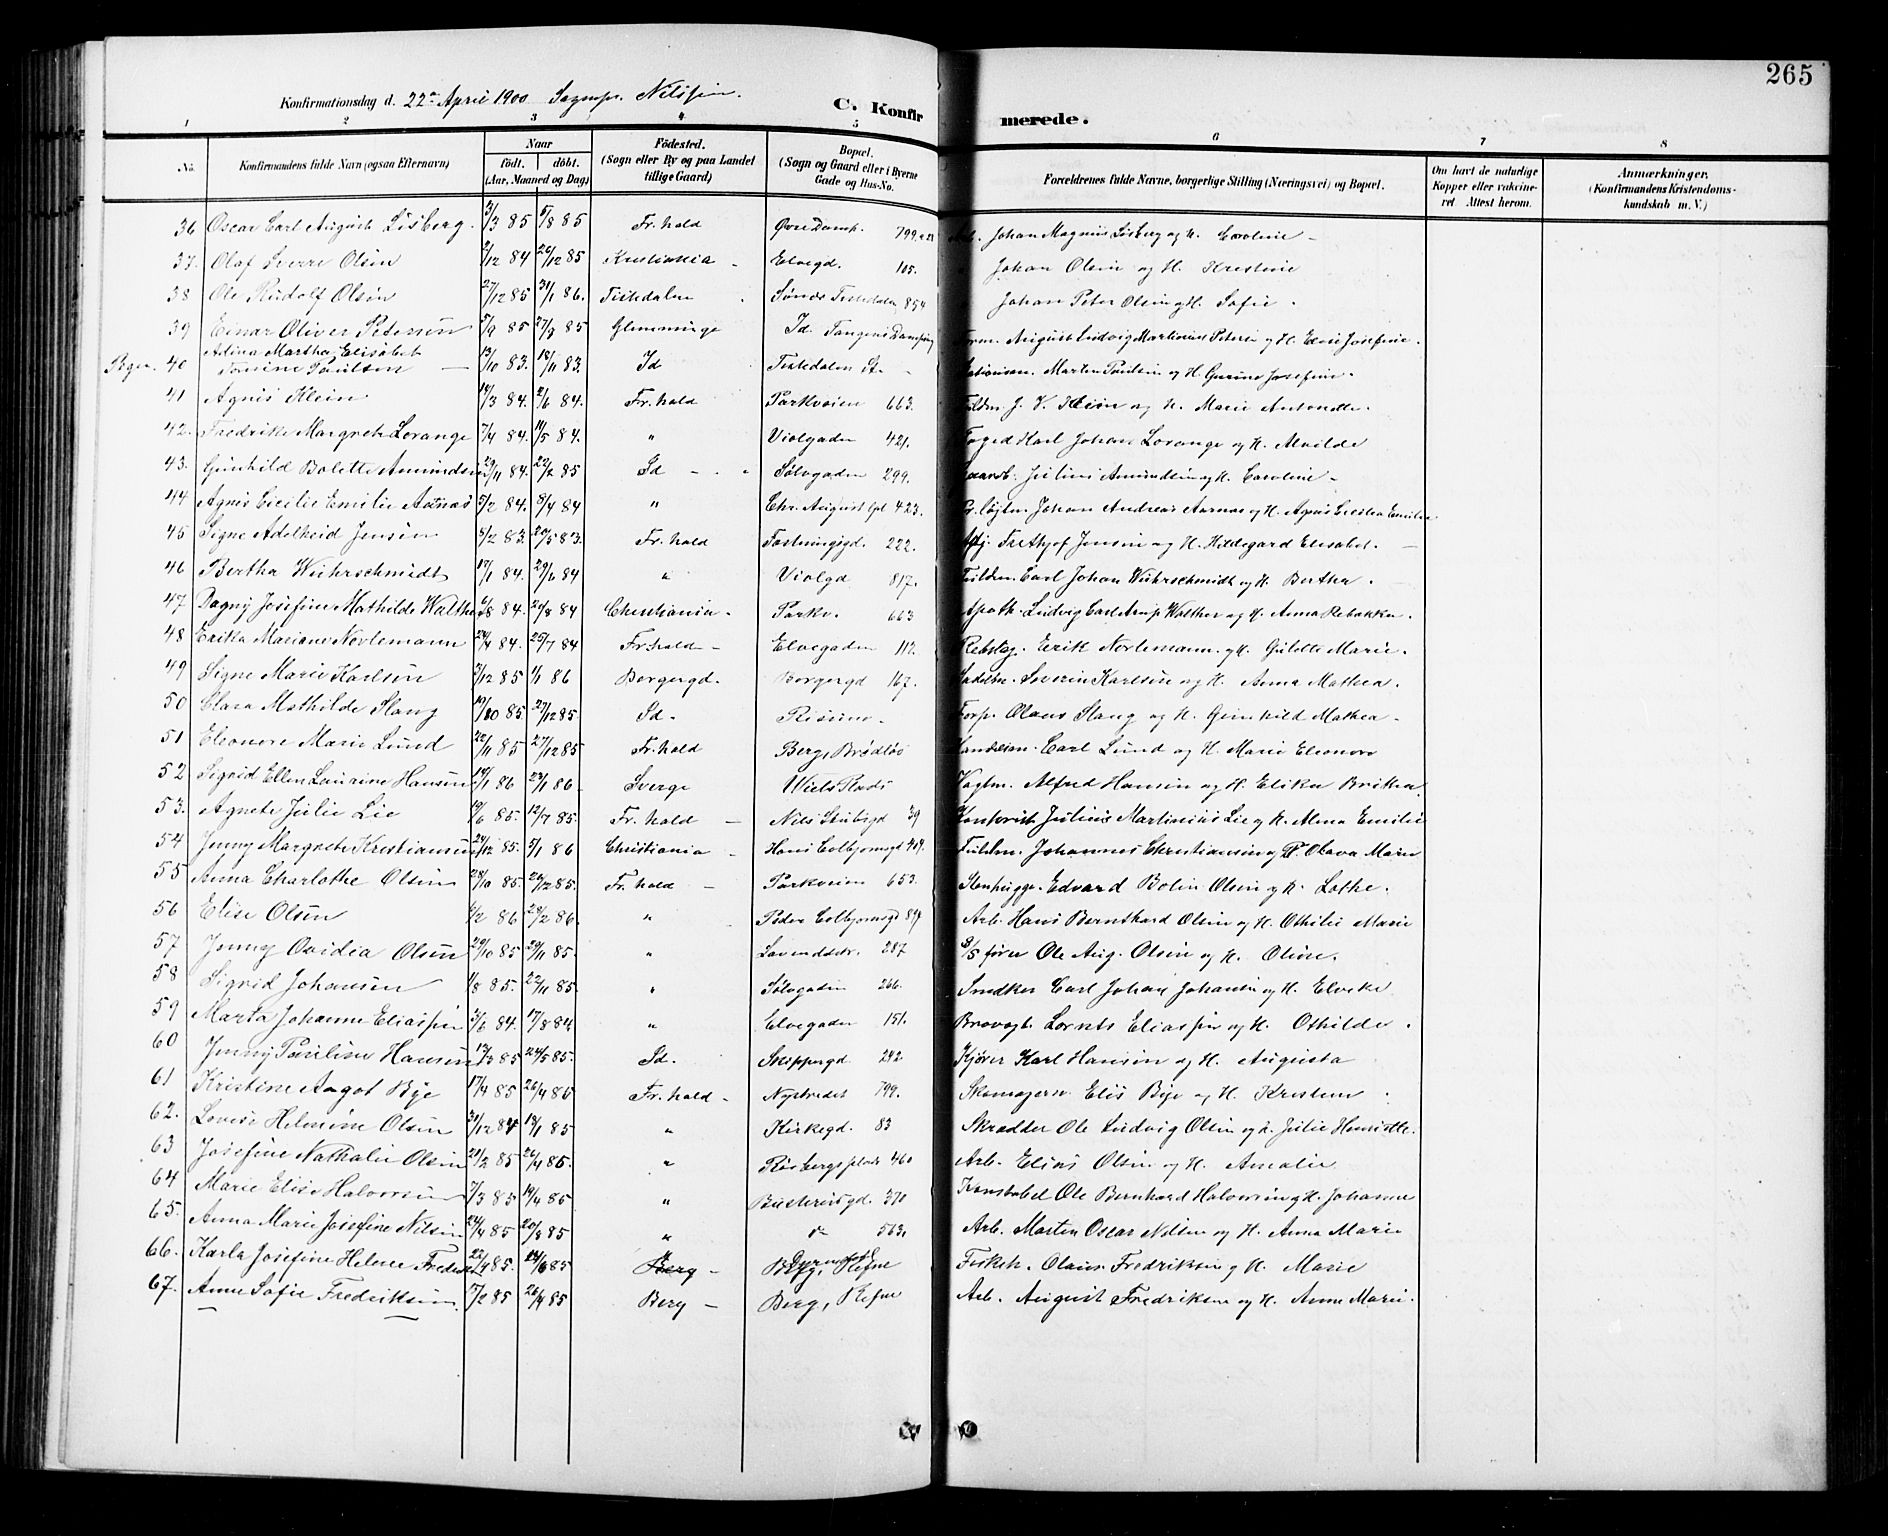 265
Konfirmationsdag d. 22de April 1900 Sognepr. Nilssen.
C. Konfirmerede.
1 2 3 4 5 6 7 8
No. Konfirmandens fulde Navn (ogsaa Efternavn) Naar født. døbt. (Aar, Maaned og Dag) Fødested. (Sogn eller By og paa Landet tillige Gaard) Bopæl. (Sogn og Gaard eller i Byerne Gade og Hus-No. Forældrenes fulde Navne, borgerlige Stilling (Næringsvei) og Bopæl. Om havt de naturlige Kopper eller vakcineret. Attest herom. Anmærkninger. (Konfirmandens Kristendomskundskab m. V.)
36 Oscar Carl August Lisberg. 3/3 85 5/8 85 Fr.hald Øvre Damh. 799 Arb. Johan Magnus Lisberg og H. Caroline
37. Olaf Sverre Olsen 2/12 84 26/12 85 Kristiania Elvegd. 105. Johan Olsen og H. Kristine
38 Ole Rudolf Olsen 27/12 85 31/1 86. Tistedalen Søndre Tistedalen 854 Johan Peter Olsen og H. Sofie
39 Einar Oliver Petersen 5/9 85 27/9 85 Glemminge Id. Tangens Dampsag August Ludvig Martinius Petersen og H. Elvi Josefine.
40 Adina Martha Elisabet Pauline Paulsen 13/10 83. 18/11 83. Id Tistedalen St. Stationsm. Martin Paulsen og H. Gurine Josefine.
41 Agnes Klein 14/3 84. 2/6 84. Fr.hald Parkveien 663. Fuldm. J. V. Klein og H. Marie Antonette.
42. Fredrikke Margrethe Lorange 7/4 84. 14/5 84. " Violgaden 421. Foged Karl Johan Lorange og H. Alvilde
43. Gunhild Bolette Amundsen 29/11 84. 22/2 85 Id Sølvgaden 299. Julius Amundsen og H. Caroline
44 Agnes Cecilie Emilie Aarnæs 5/2 84. 8/4 84 " Chr. August Gd 423. Pr.løjtn. Johan Andreas Aarnæs og H. Agnes Cecilia Emilie
45 Signe Adelheid Jensen 5/2 83. 20/5 83. Fr.hald Fæstningsgd. 222. Frethjof Jensen og H. Hildegard Elisabet.
46 Bertha Wuhrschmidt 17/1 84. 29/6 84 " Violgd 817. Fuldm. Carl Johan Wuhrschmidt og H. Bertha.
47 Dagny Josefine Mathilde Walther 6/8 84. 24/8 84 Christiania. Parkv. 663 Apoth. Ludvig Carl Arup Walther og H. Anna Rebekka.
48 Erika Mariane Norlemann 24/4 84. 25/7 84 Fr.hald Elvegaden 112. Rebslag. Erik Norlemann og H. Gulette Marie.
49 Signe Marie Karlsen 3/12 85 1/1 86 Borgergd. Borgergd 167. Sadelm. Severin Karlsen og H. Anna Mathea.
50 Clara Mathilde Stang 19/10 85. 27/12 85. Id. Risum. Forp. Olaus Stang og H. Gunhild Mathea
51 Eleonore Marie Lund 22/11 85 27/12 85 Fr.hald Berg, Brødløs Handelsm. Carl Lund og H. Marie Eleonore
52 Sigrid Ellen Laurine Hansen 14/1 86 24/1 86 Sverge Wiels Plads Vagtm. Alfred Hansen og H. Elika Britha
53. Agnete Julie Lie 19/6 85. 12/7 85. Fr.hald Nils Stubsgd 39 Kontorist Julius Martinius Lie og H. Alma Emilie
54 Jenny Margrete Kristiansen 24/12 85. 3/1 86 Christiania Hans Colbjørnsgd 409. Fuldm. Johannes Christiansen og H. Olava Marie
55 Anna Charlothe Olsen 28/10 85. 26/12 85. Fr.hald Parkveien 653. Stenhugge. Edvard Bolin Olsen og H. Lothe.
56 Elise Olsen 6/2 86 28/2 86. " Peder Colbjørnsgd 897 Arb. Hans Bernthard Olsen og H. Othilie Marie
57 Jenny Ovidia Olsen 29/10 85 29/11 85. " 287 S/S fører Ole Aug. Olsen og H. Oline.
58 Sigrid Johansen 1/8 85. 22/11 85. " Sølvgaden 266. Snedker Carl Johan Johansen og H. Elveke
59 Marta Johanne Eliassen 3/6 84. 17/8 84 " Elvegaden 151. Brovagt. Lornts Eliassen og H. Othilde.
60 Jenny Pauline Hansen 12/3 85 24/5 85. Id. Skippergd. 242. Kjører Karl Hansen og H. Augusta
61 Kristine Aagot Bye 17/4 85 26/4 85 Fr.hald Nystredet 799. Skomagersv. Elis Bye og H. Kristine
62. Lovise Helmine Olsen 31/12 84 18/1 85 " Kirkegd. 83 Skrædder Ole Ludvig Olsen og H. Julie Henriette.
63 Josefine Nathalie Olsen 21/2 85 26/4 85. " Risbergs plads 460 Arb. Elias Olsen og H. Amalie
64 Marie Elise Halvorsen 7/3 85 19/4 85 " Busterudsgd. 370 Konstabel Ole Bernhard Halvorsen og H. Johanne
65. Anna Marie Josefine Nilsen 24/4 85 20/9 85 " do 563. Arb. Martin Oscar Nilsen og H. Anna Marie
66. Karla Josefine Helene Fredriks 22/4 85. 14/6 85 Berg Berg, Refne Fiskeh. Olaus Fredriksen og H. Marie
67. Anne Sofie Fredriksen. 17/2 85 26/4 85 Berg Berg, Refne Arb. August Fredriksen og H. Anne Marie.